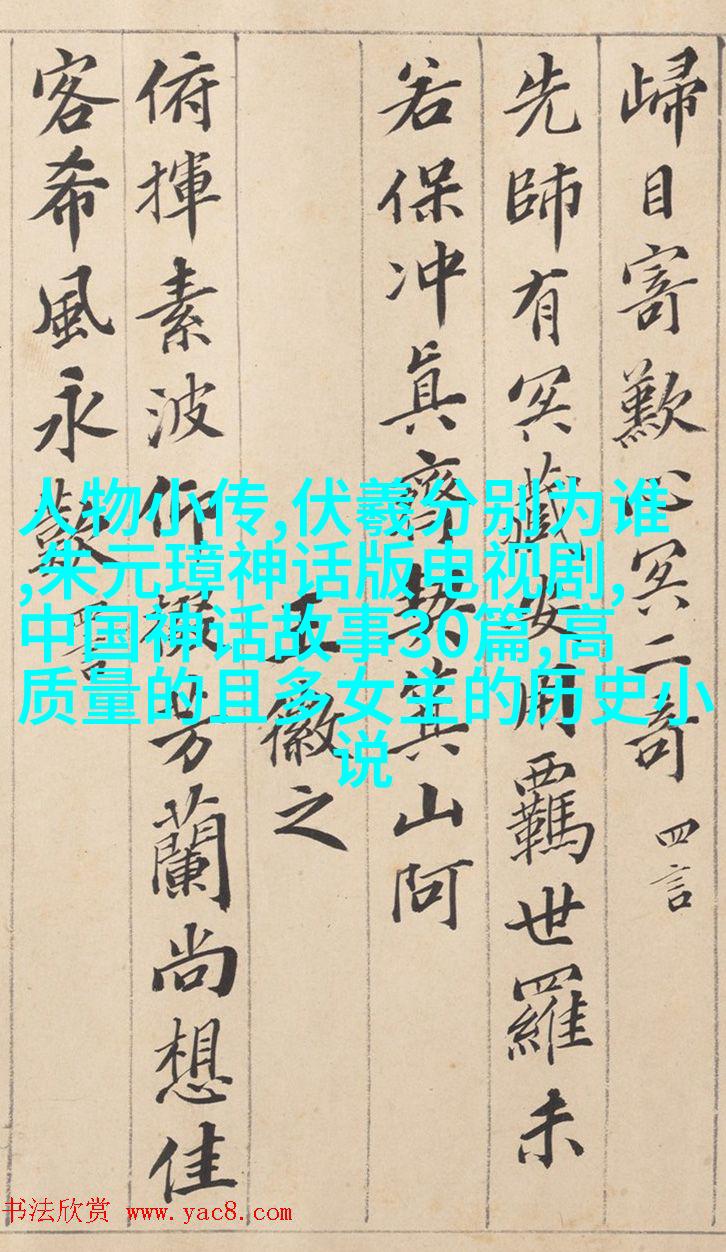 歸目寄歎心冥二奇 四言
先師有冥藏安用羈世羅未
若保冲真齊契箕山阿
王徽之
俯揮素波仰掇芳蘭尚想佳
客希風永歎 言
人物小传,伏羲分别为谁
,朱元璋神话版电视剧,
中国神话故事30篇,高
质量的且多女主的历史小
说
书法欣赏 www.yac8.com